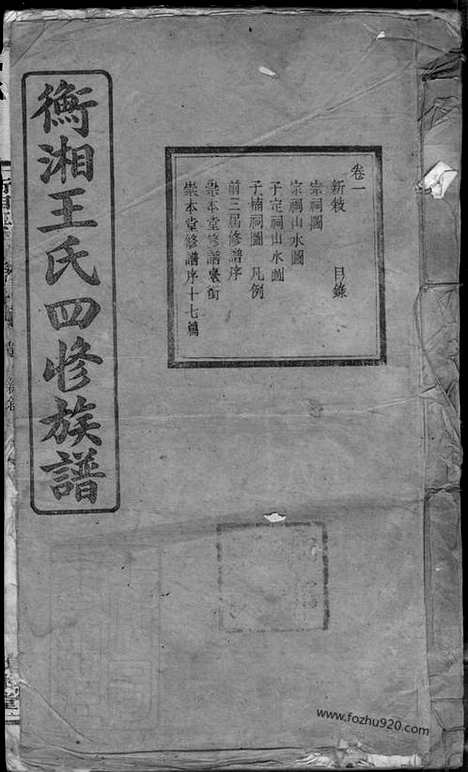 衡湘王氏四修族譜
卷一
新敘　目錄
宗祠圖
宗祠山水圖
子定祠山水圖
子楠祠圖　凡例
前三屆修譜序
崇本堂修譜銜
崇本堂修譜序十七篇
www.fozhu920.com